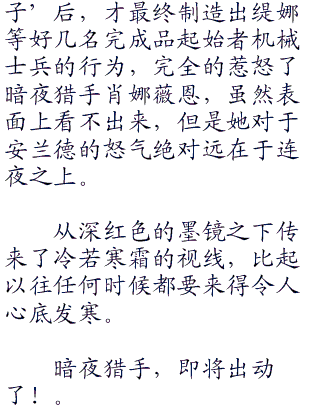 子’后，才最终制造出缇娜
等好几名完成品起始者机械
士兵的行为，完全的惹怒了
暗夜猎手肖娜薇恩，虽然表
面上看不出来，但是她对于
安兰德的怒气绝对远在于连
夜之上。
从深红色的墨镜之下传
来了冷若寒霜的视线，比起
以往任何时候都要来得令人
心底发寒。
暗夜猎手，即将出动
了！。